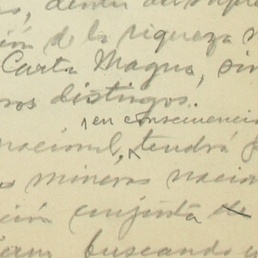 ción de la riqueza
Carta Magna, sin
distingos.
en consecuencia
nacional, tendrá
mineros nacio
ción conjunta de
buscando